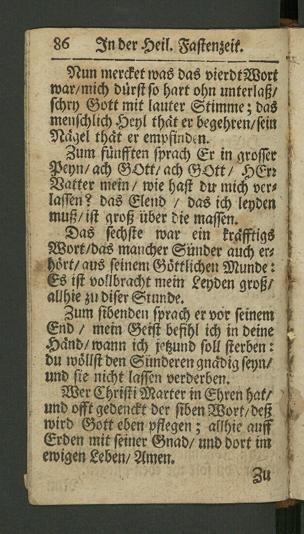 86 In der Heil. Fastenzeit.
Nun mercket was das vierdt Wort
war/mich dürst so hart ohn unterlaß/
schry Gott mit lauter Stimme; das
menschlich Heyl thät er begehren/sein
Nägel thät er empfinden.
Zum fünfften sprach Er in grosser
Peyn/ ach GOtt/ ach GOtt/ HErr
Vatter mein/ wie hast du mich ver-
lassen? das Elend / das ich leyden
muß/ ist groß über die massen.
Das sechste war ein kräfftigs
Wort/das mancher Sünder auch er-
hört/aus seinem Göttlichen Munde:
Es ist vollbracht mein Leyden groß/
allhie zu diser Stunde.
Zum sibenden sprach er vor seinem
End / mein Geist befihl ich in deine
Händ/wann ich jetzund soll sterben:
du wöllst den Sünderen gnädig seyn/
und sie nicht lassen verderben.
Wer Christi Marter in Ehren hat/
und offt gedenckt der siben Wort/deß
wird Gott eben pflegen; allhie auff
Erden mit seiner Gnad/ und dort im
ewigen Leben/ Amen.
Zu